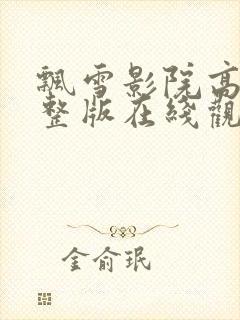 飄雪影院高
整版在綫觀
金俞珉